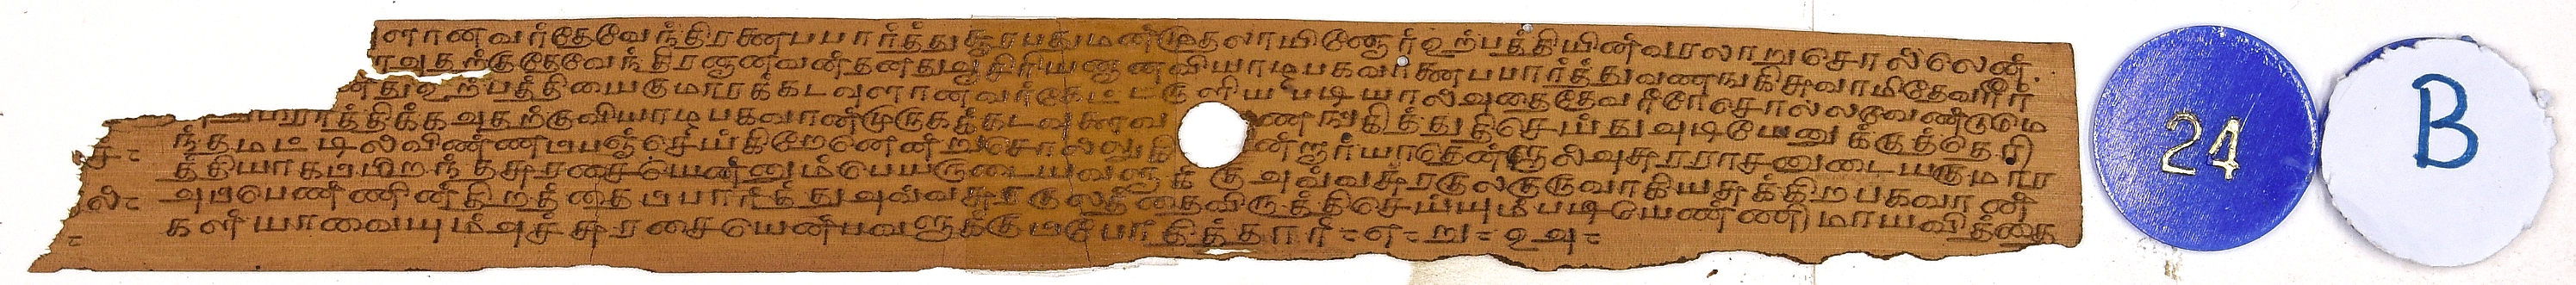 ளானவர்தேவேந்திரணைபபார்த்துசூரபதுமன்முதலாயினோர்உற்பத்தியின்வரலாறுசொல்லென்
ரஅதற்குதேவேந்திரனானவன்தனதுஆசிரியனானவியாழபகவானைபபார்த்துவணஙகிசுவாமிதேவரீர்
ந்துஉற்பத்தியைகுமாரக்கடவுளானவர்கேட்டருளியபடியால்அதைதேவரீரேசொல்லவேண்டும
பரார்த்திக்கஅதற்குவியாழபகவான்முருகக்கடவுளைவ ணஙகித்துதிசெய்துஅடியேனுக்குத்தெரி
ந்தமட்டில்விண்ணபபஞ்செய்கிறேனென்றுசொல்லு ன்றார்யாதென்றால்அசுரராசனுடையகுமார
த்தியாகபபிறந்தசுரசையென்னும்பெயருடையவளுக் குஅவ்வசுரகுலகுருவாகியசுக்கிறபகவான்
அபபெண்ணின்திறத்தைபபார்த்துஅவ்வசுரகுலத்தைவிருத்திசெய்யும்படியெண்ணிமாயவித்தை
கள்யாவையும்அச்சுரசையென்பவளுக்குபபோதித்தார்
24
B